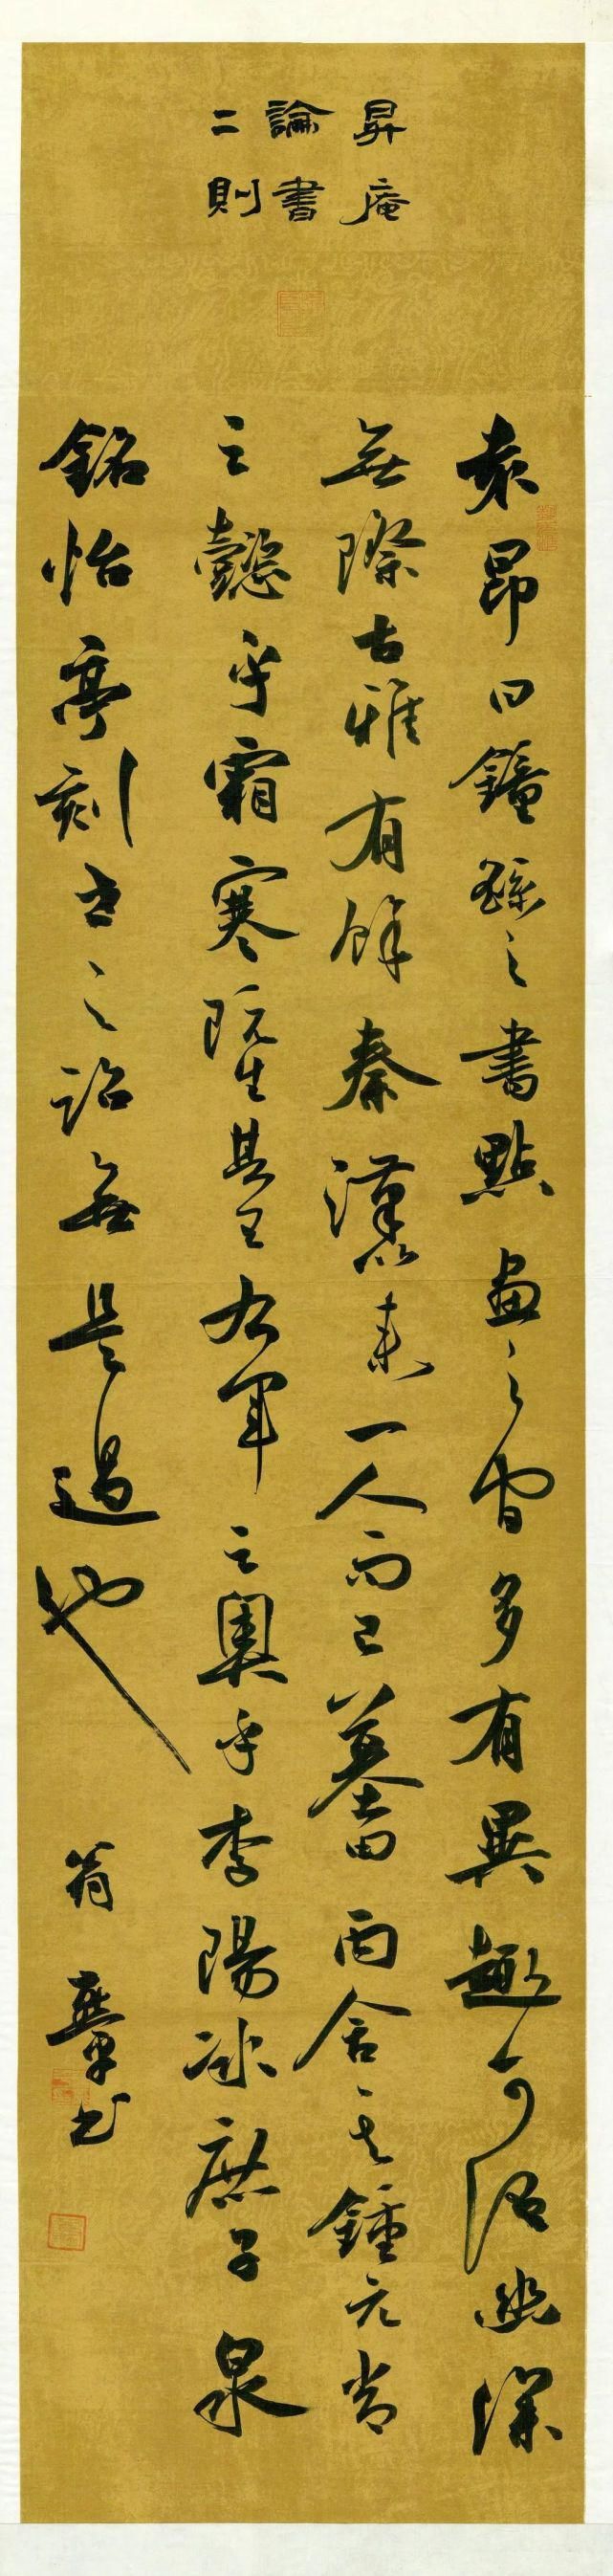 昇庵
論書
二則
袁昂曰鐘繇之書點畫之間多有異趣可謂幽深
無際古雅有餘秦漢以來一人而已墓田丙舍其鍾元常
之懿乎霜寒阮生其王右軍之奧乎李陽冰庶子泉
銘怡亭刻古之詔無是過也
翁書